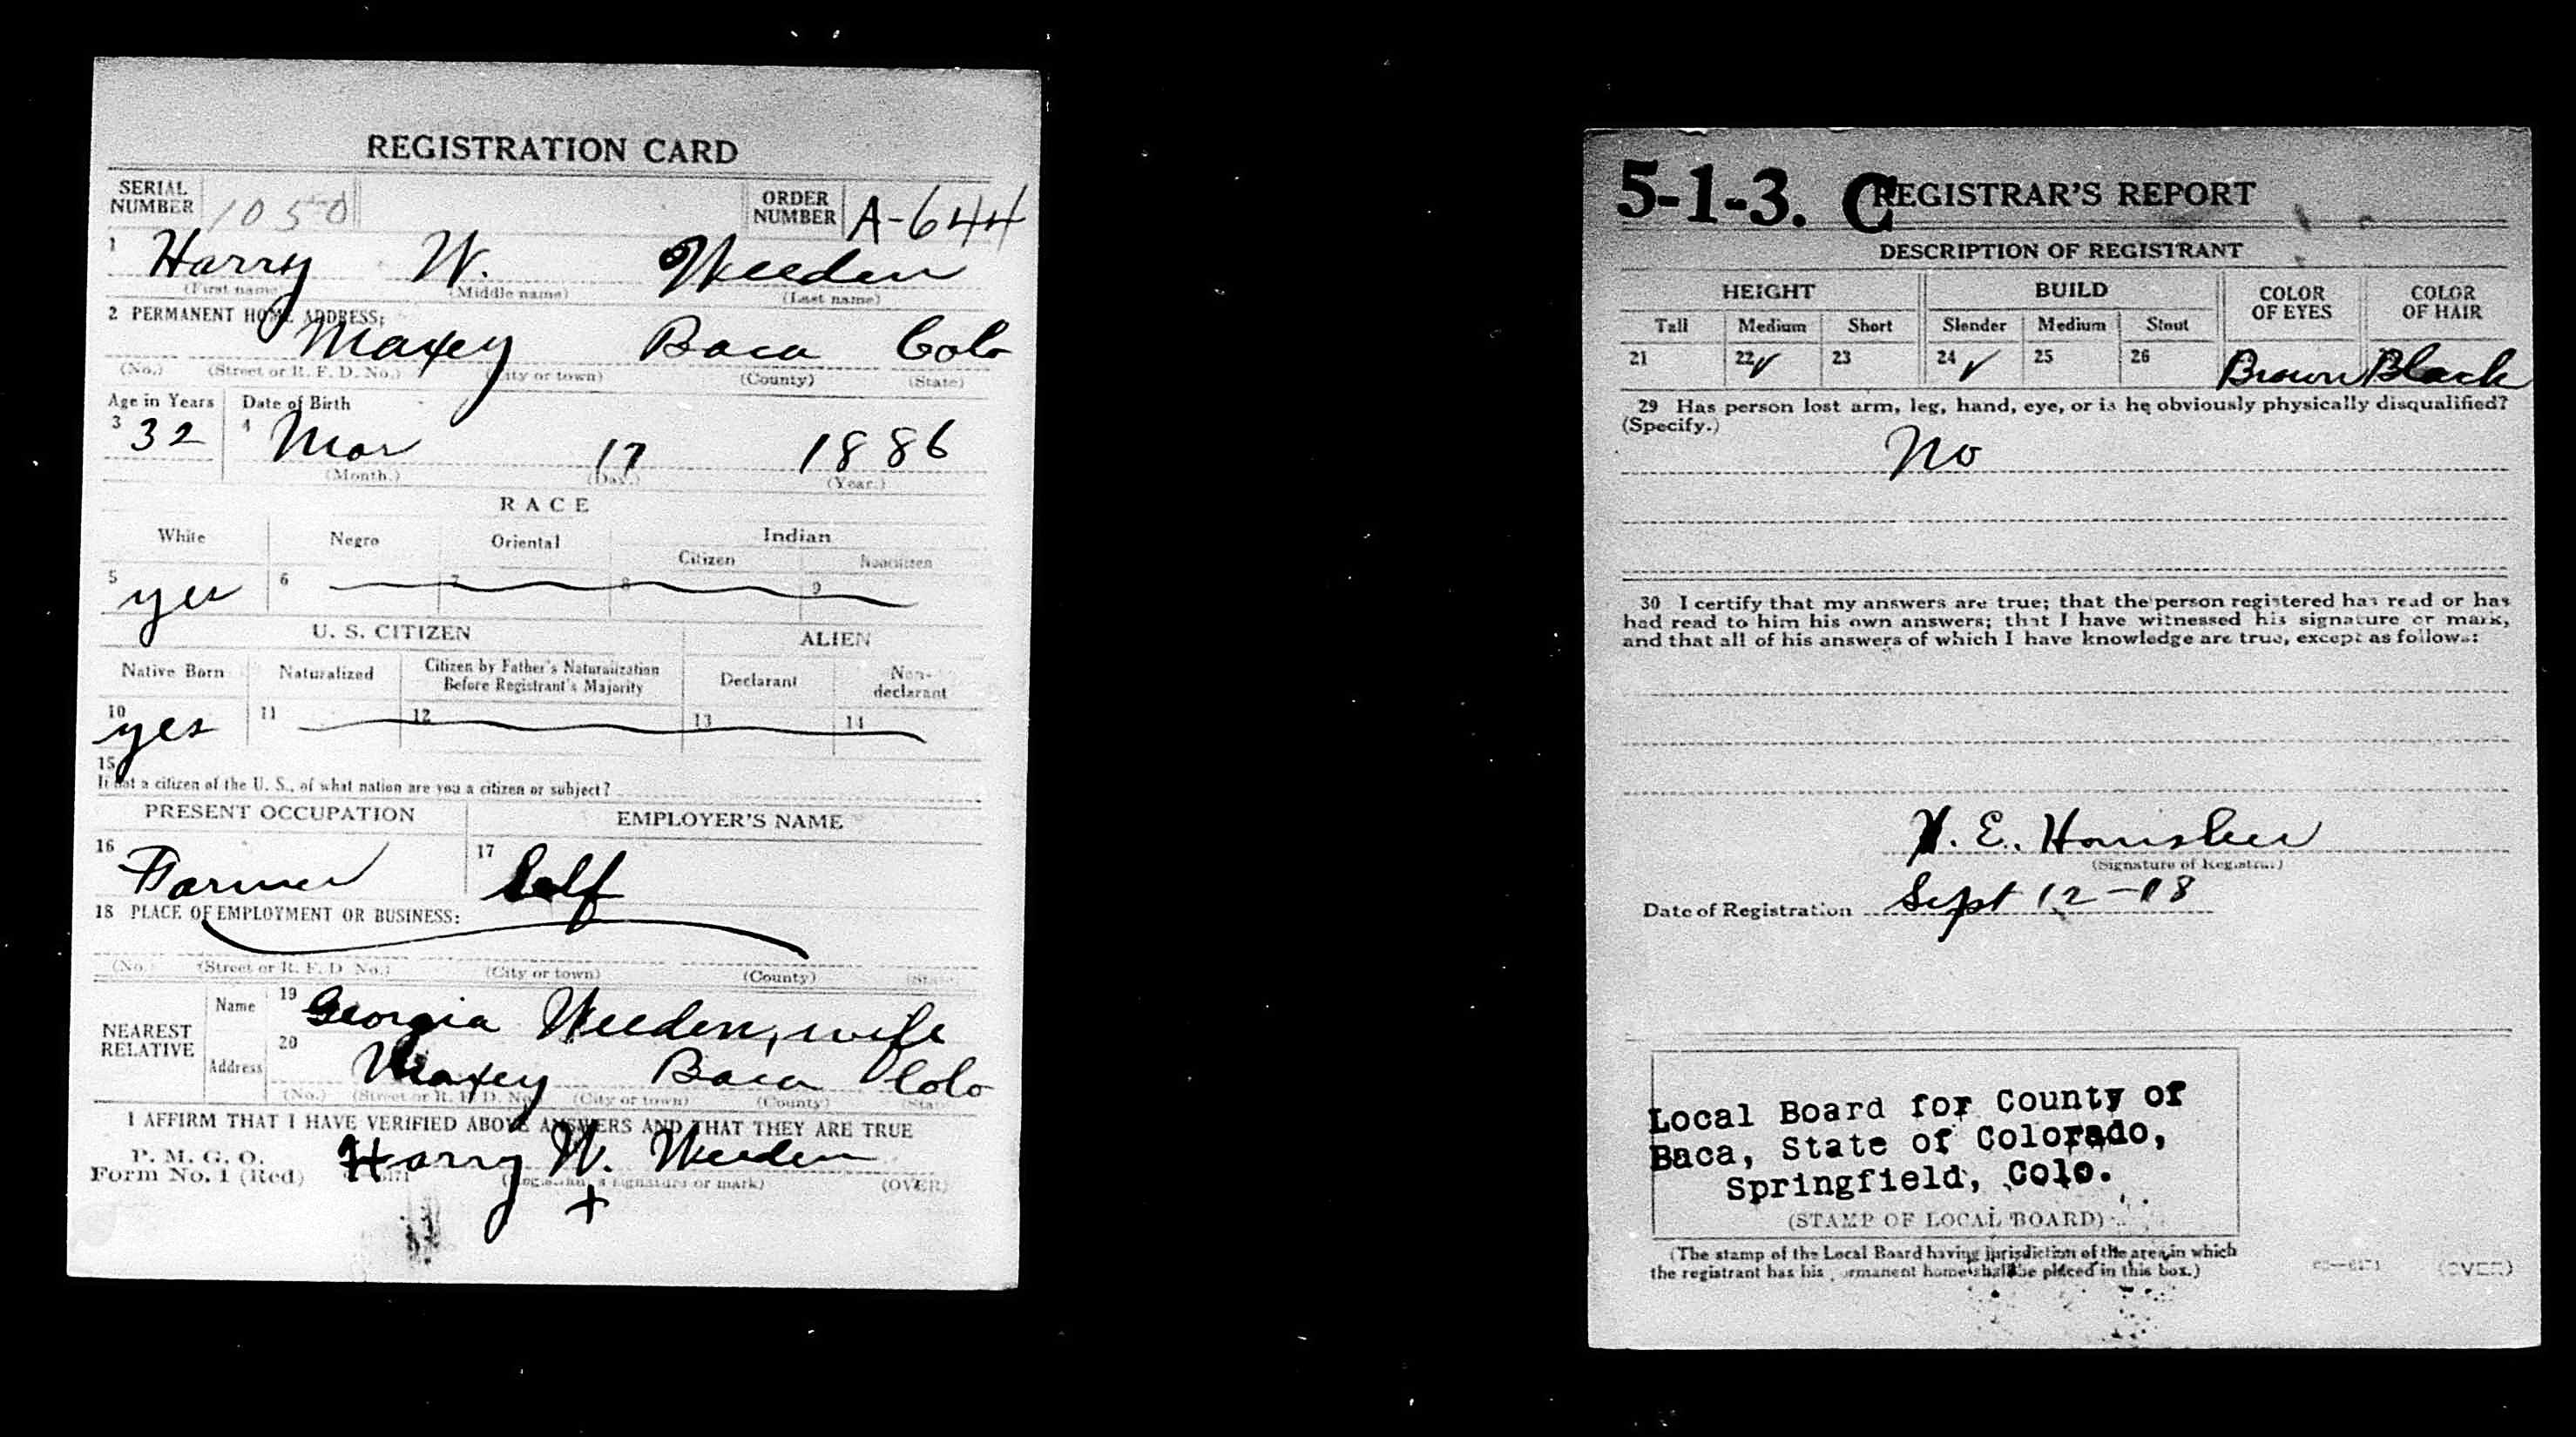 REGISTRATION CARD
SERIAL NUMBER 1050 ORDER NUMBER A-644
1 Harry W. Weeden
(First name) (Middle name) (Last name)
2 PERMANENT HOME ADDRESS:
Maxey Baca Colo
(No.) (Street or R. F. D. No.) (City or town) (County) (State)
Age in Years Date of Birth
3 32 4 Mar 17 1886
(Month.) (Day.) (Year.)
RACE
White Negro Oriental Indian
Citizen Noncitizen
5 yes 6 7 8 9
U. S. CITIZEN ALIEN
Native Born Naturalized Citizen by Father's Naturalization Before Registrant's Majority Declarant Non-declarant
10 yes 11 12 13 14
15
If not a citizen of the U. S., of what nation are you a citizen or subject?
PRESENT OCCUPATION EMPLOYER'S NAME
16 Farmer 17 Self
18 PLACE OF EMPLOYMENT OR BUSINESS:
(No.) (Street or R. F. D. No.) (City or town) (County) (State)
NEAREST RELATIVE
Name 19 Georgia Weeden, wife
Address 20 Maxey Baca Colo
(No.) (Street or R. F. D. No.) (City or town) (County) (State)
I AFFIRM THAT I HAVE VERIFIED ABOVE ANSWERS AND THAT THEY ARE TRUE
P. M. G. O.
Form No. 1 (Red) Harry W. Weeden
(Registrant's signature or mark) (OVER)
+
5-1-3. C REGISTRAR'S REPORT
DESCRIPTION OF REGISTRANT
HEIGHT BUILD COLOR OF EYES COLOR OF HAIR
Tall Medium Short Slender Medium Stout
21 22 ✓ 23 24 ✓ 25 26 Brown Black
29 Has person lost arm, leg, hand, eye, or is he obviously physically disqualified?
(Specify.)
No
30 I certify that my answers are true; that the person registered has read or has
had read to him his own answers; that I have witnessed his signature or mark,
and that all of his answers of which I have knowledge are true, except as follows:
E.
(Signature of Registrar)
Date of Registration Sept 12-18
Local Board for County of
Baca, State of Colorado,
Springfield, Colo.
(STAMP OF LOCAL BOARD)
(The stamp of the Local Board having jurisdiction of the area in which
the registrant has his permanent home shall be placed in this box.)
(OVER)